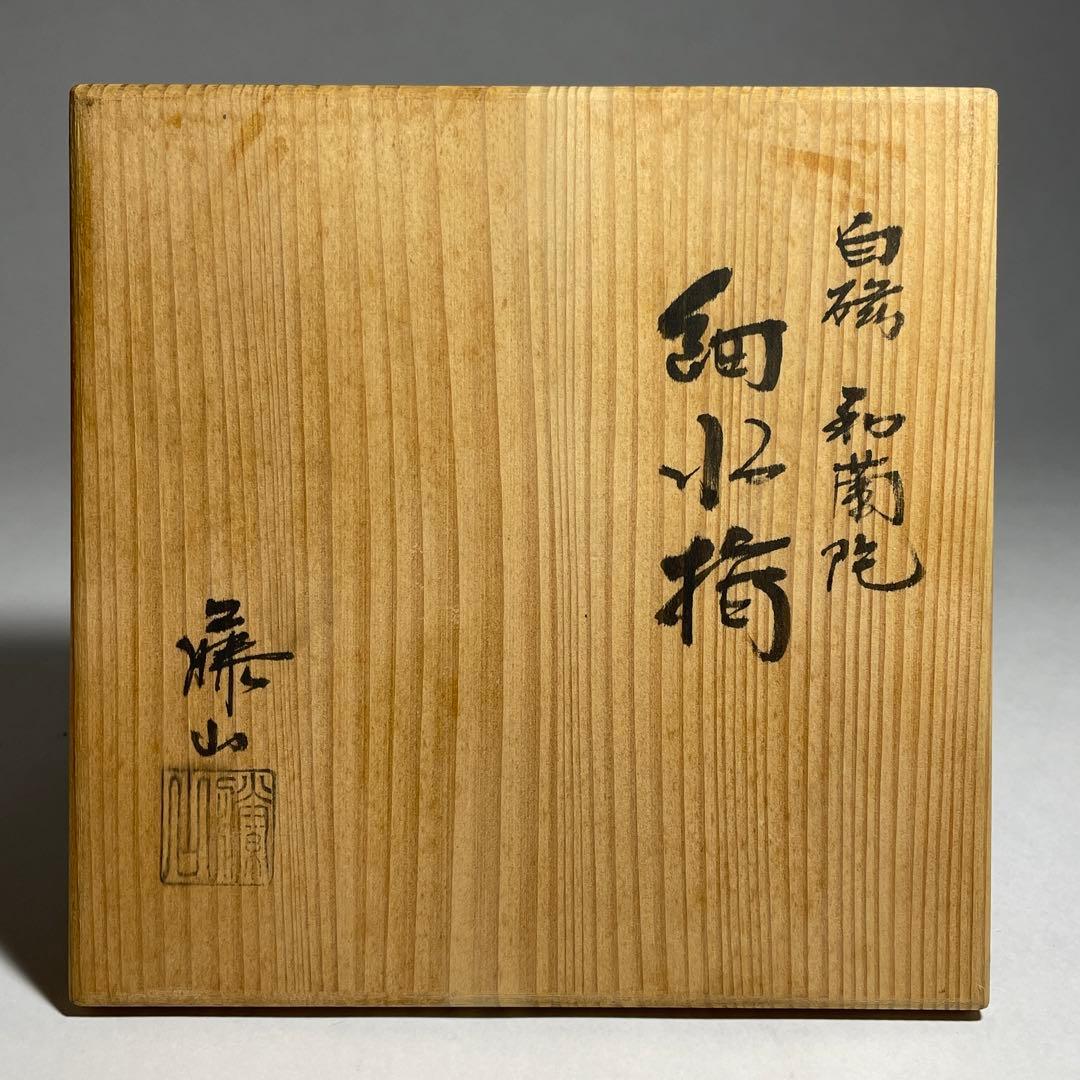 白磁 和蘭陀
細水指
藤山